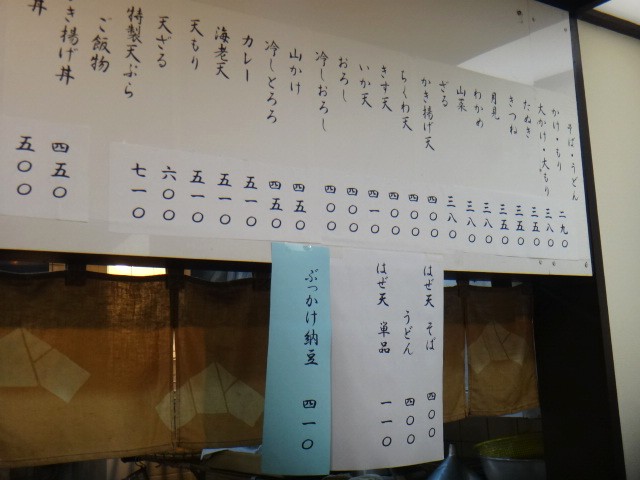 そば・うどん
かけ・もり 二九〇
大かけ・大もり 三八〇
たぬき 三五〇
きつね 三五〇
月見 三五〇
わかめ 三八〇
山菜 三八〇
ざる 三八〇
かき揚げ天 四〇〇
ちくわ天 四〇〇
きす天 四〇〇
いか天 四一〇
おろし 四〇〇
冷しおろし 四〇〇
山かけ 四五〇
冷しとろろ 四五〇
カレー 五一〇
海老天 五一〇
天もり 五一〇
天ざる 六〇〇
特製天ぷら 七一〇
ご飯物
き揚げ丼 四五〇
丼 五〇〇
はぜ天 そば 四〇〇
うどん 四〇〇
はぜ天 単品 一一〇
ぶっかけ納豆 四一〇